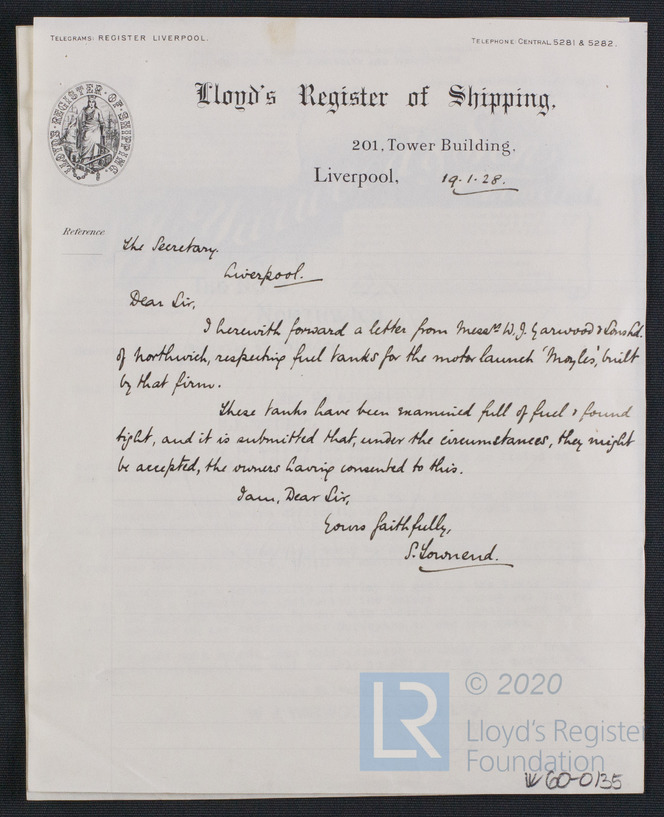 TELEGRAMS: REGISTER LIVERPOOL.
TELEPHONE: CENTRAL, 5281 & 5282.
LLOYDS·REGISTER·OF·SHIPPING.
Lloyd's Register of Shipping,
201, Tower Building,
Liverpool, 19·1·28.
Reference
The Secretary.
Liverpool.
Dear Sir,
I herewith forward a letter from Messrs W. J. Yarwood & Sons Ld.
of Northwich, respecting fuel tanks for the motor launch 'Moyles', built
by that firm.
These tanks have been examined full of fuel & found
tight, and it is submitted that, under the circumstances, they might
be accepted, the owners having consented to this.
I am, Dear Sir,
Yours faithfully,
S. Townend.
LR
© 2020
Lloyd's Register
Foundation
W 60-0135